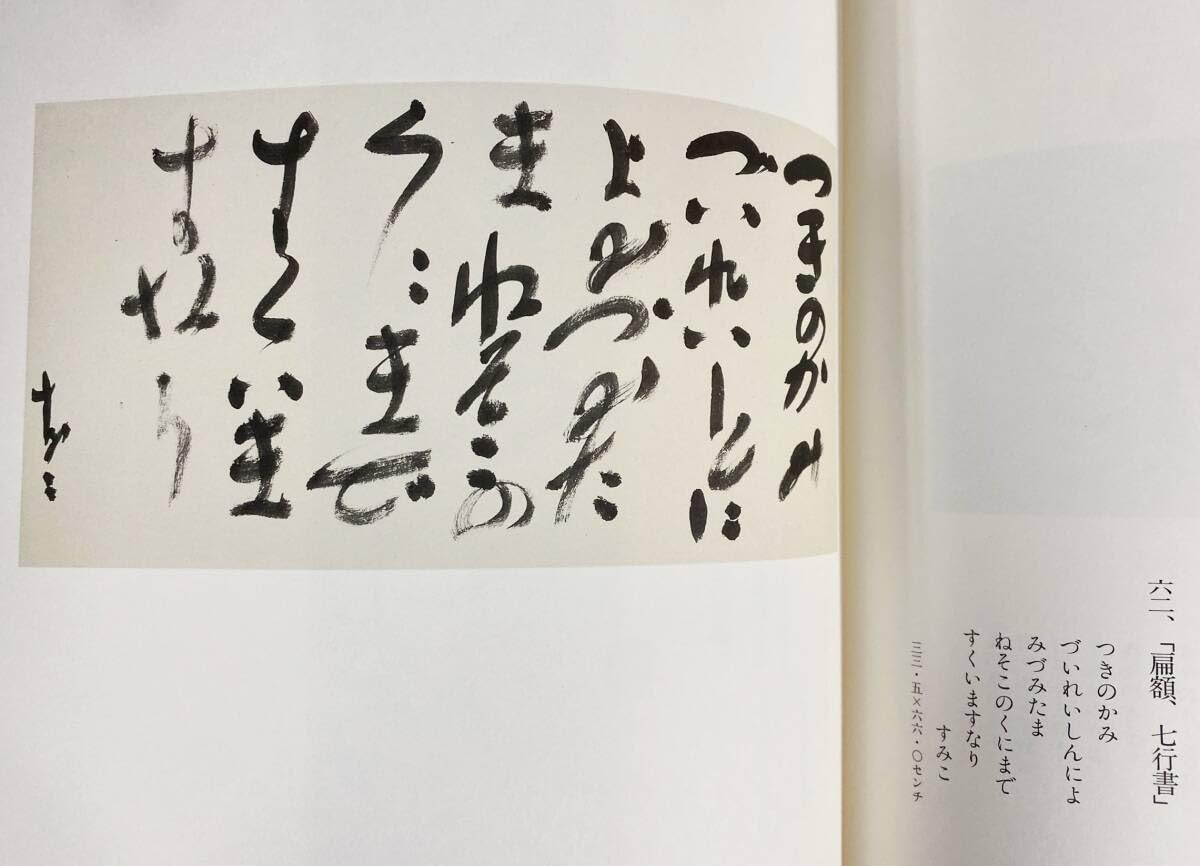 六二、「扁額、七行書」
つきのかみ
づいれいしんによ
みづみたま
ねそこのくにまで
すくいますなり
すみこ
三三・五×六六・〇センチ
つきのかみ
づいれいしんに
よみづみた
まねそこの
くにまで
すくいま
すなり
すみこ